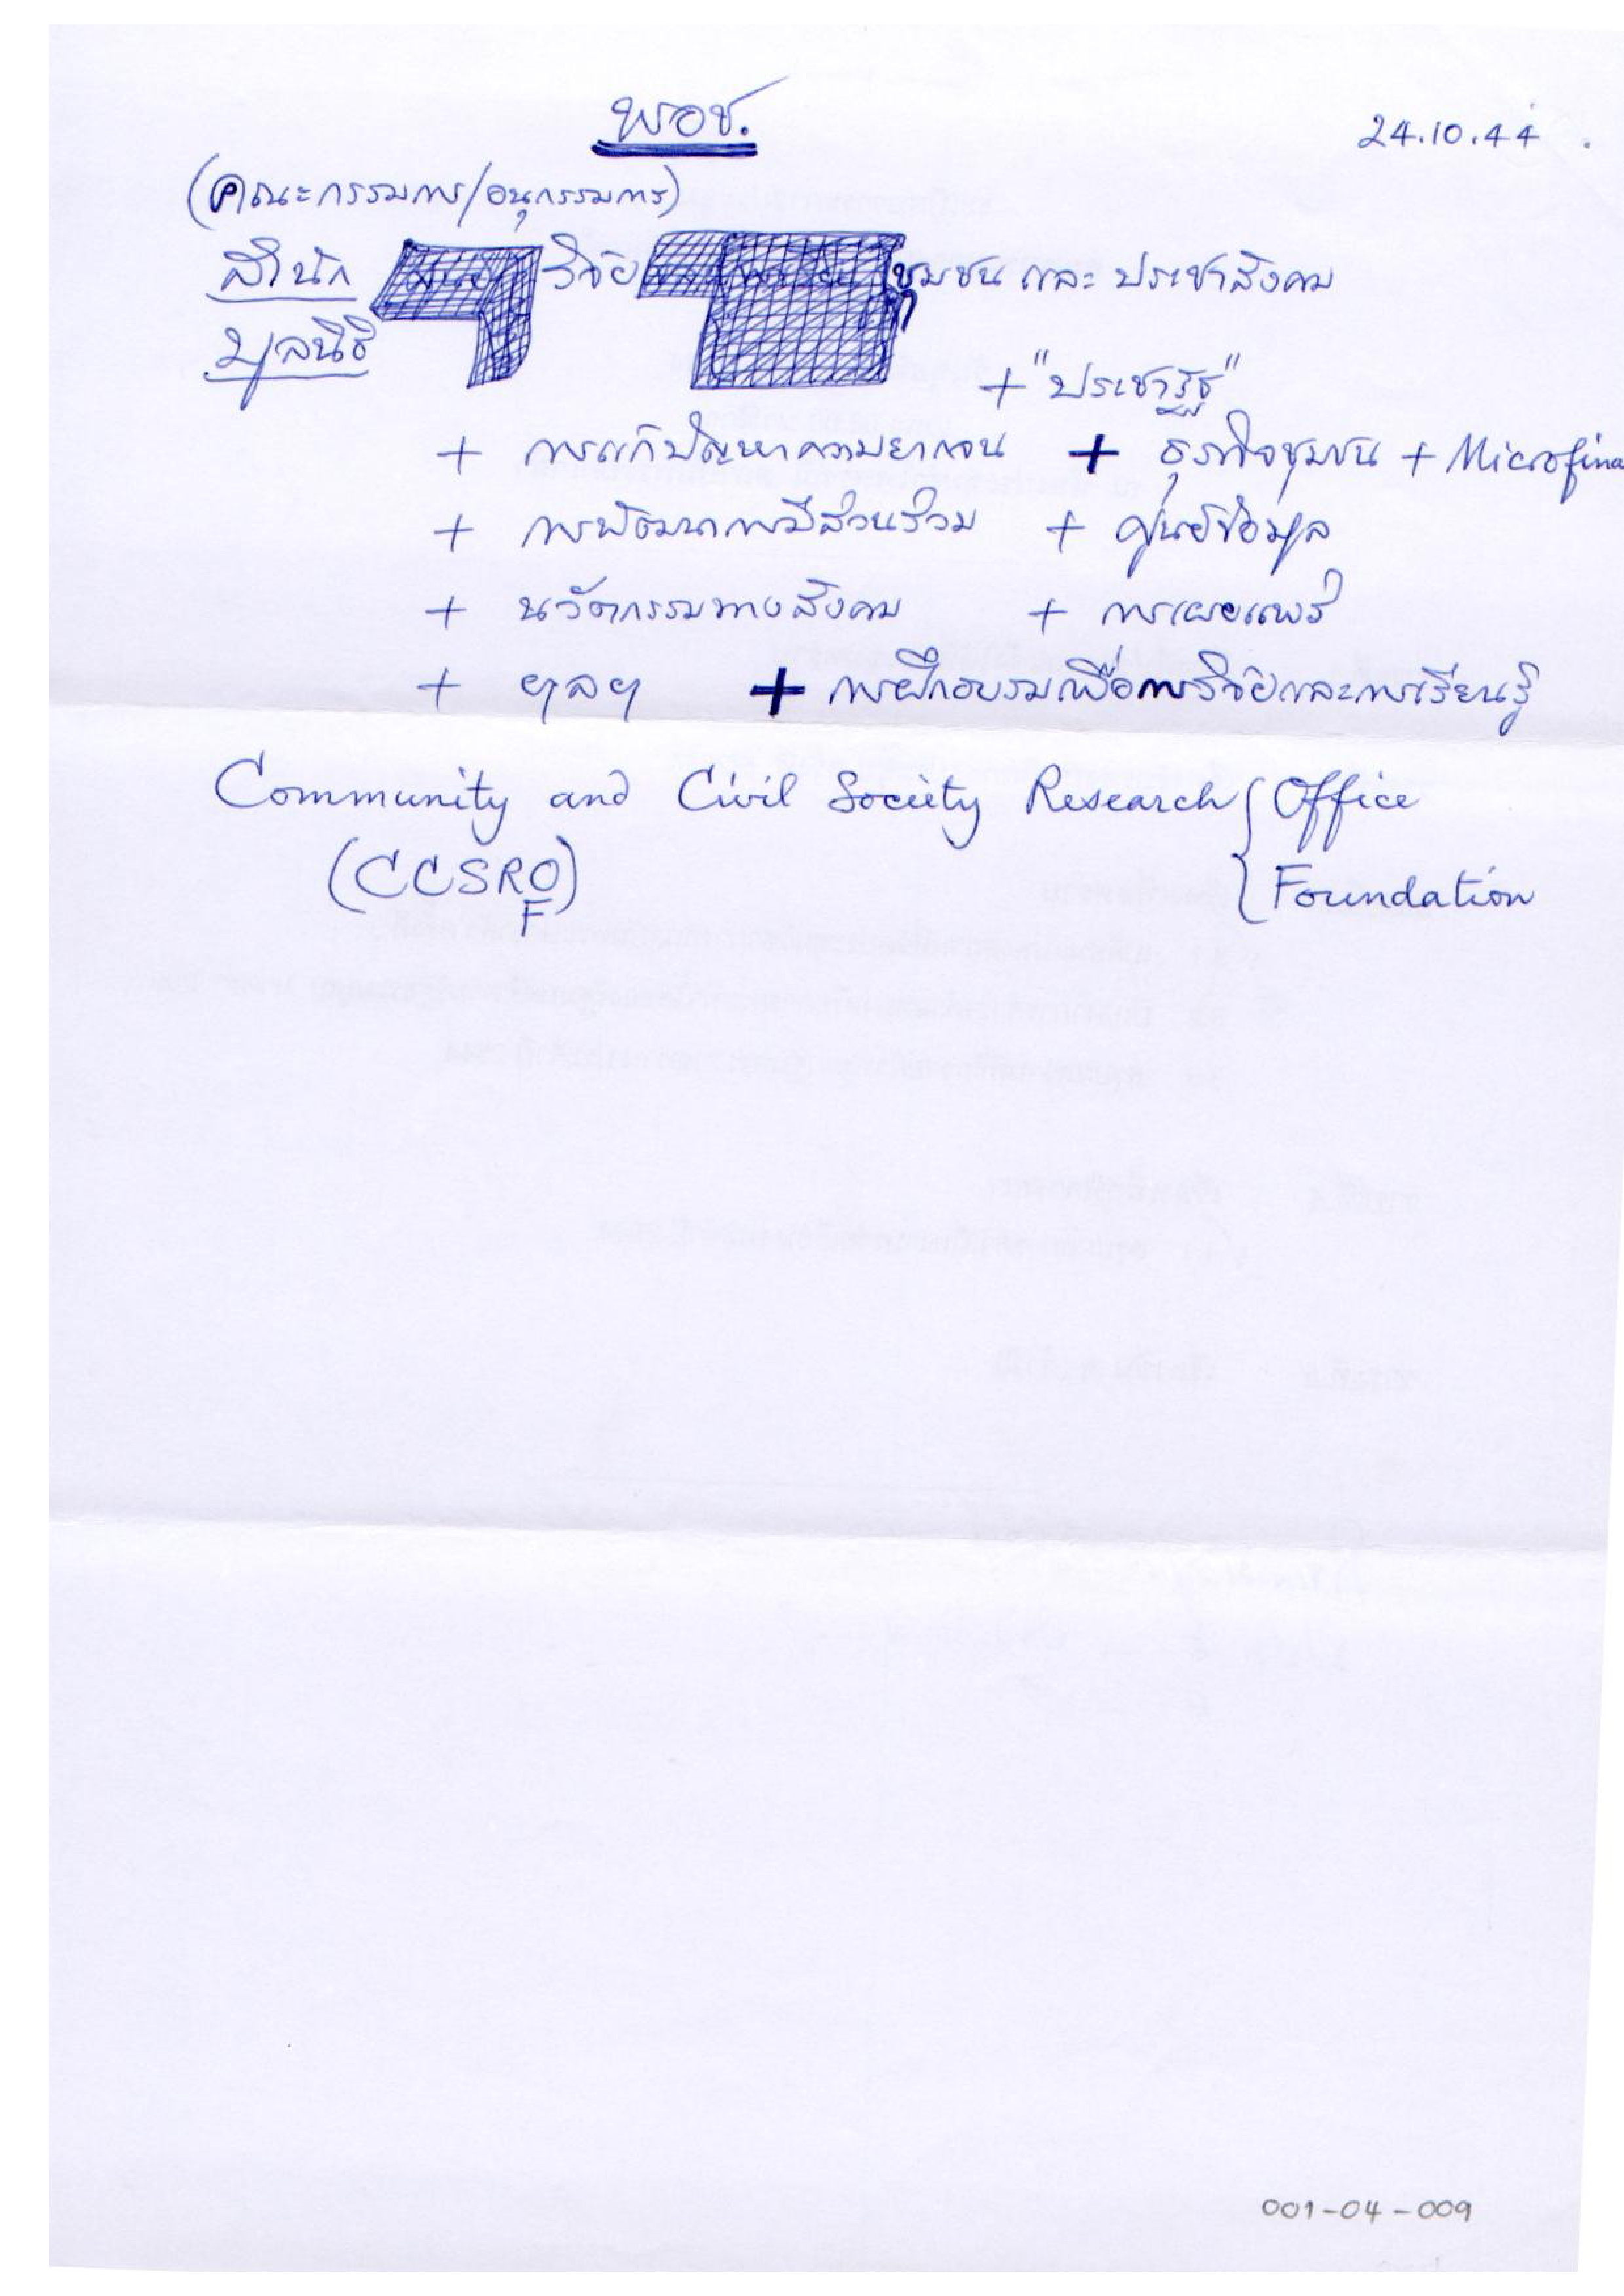 พอช.
24.10.44
(คณะกรรมการ/อนุกรรมการ)
สำนัก วิจัย ชุมชน และ ประชาสังคม
มูลนิธิ
+ "ประชารัฐ"
+ การแก้ปัญหาความยากจน + ธุรกิจชุมชน + Microfina
+ การพัฒนาการมีส่วนร่วม + ศูนย์ข้อมูล
+ นวัตกรรมทางสังคม + การเผยแพร่
+ ฯลฯ + การฝึกอบรมเพื่อการวิจัยและการเรียนรู้
Community and Civil Society Research { Office
(CCSRO) { Foundation
F
001-04-009